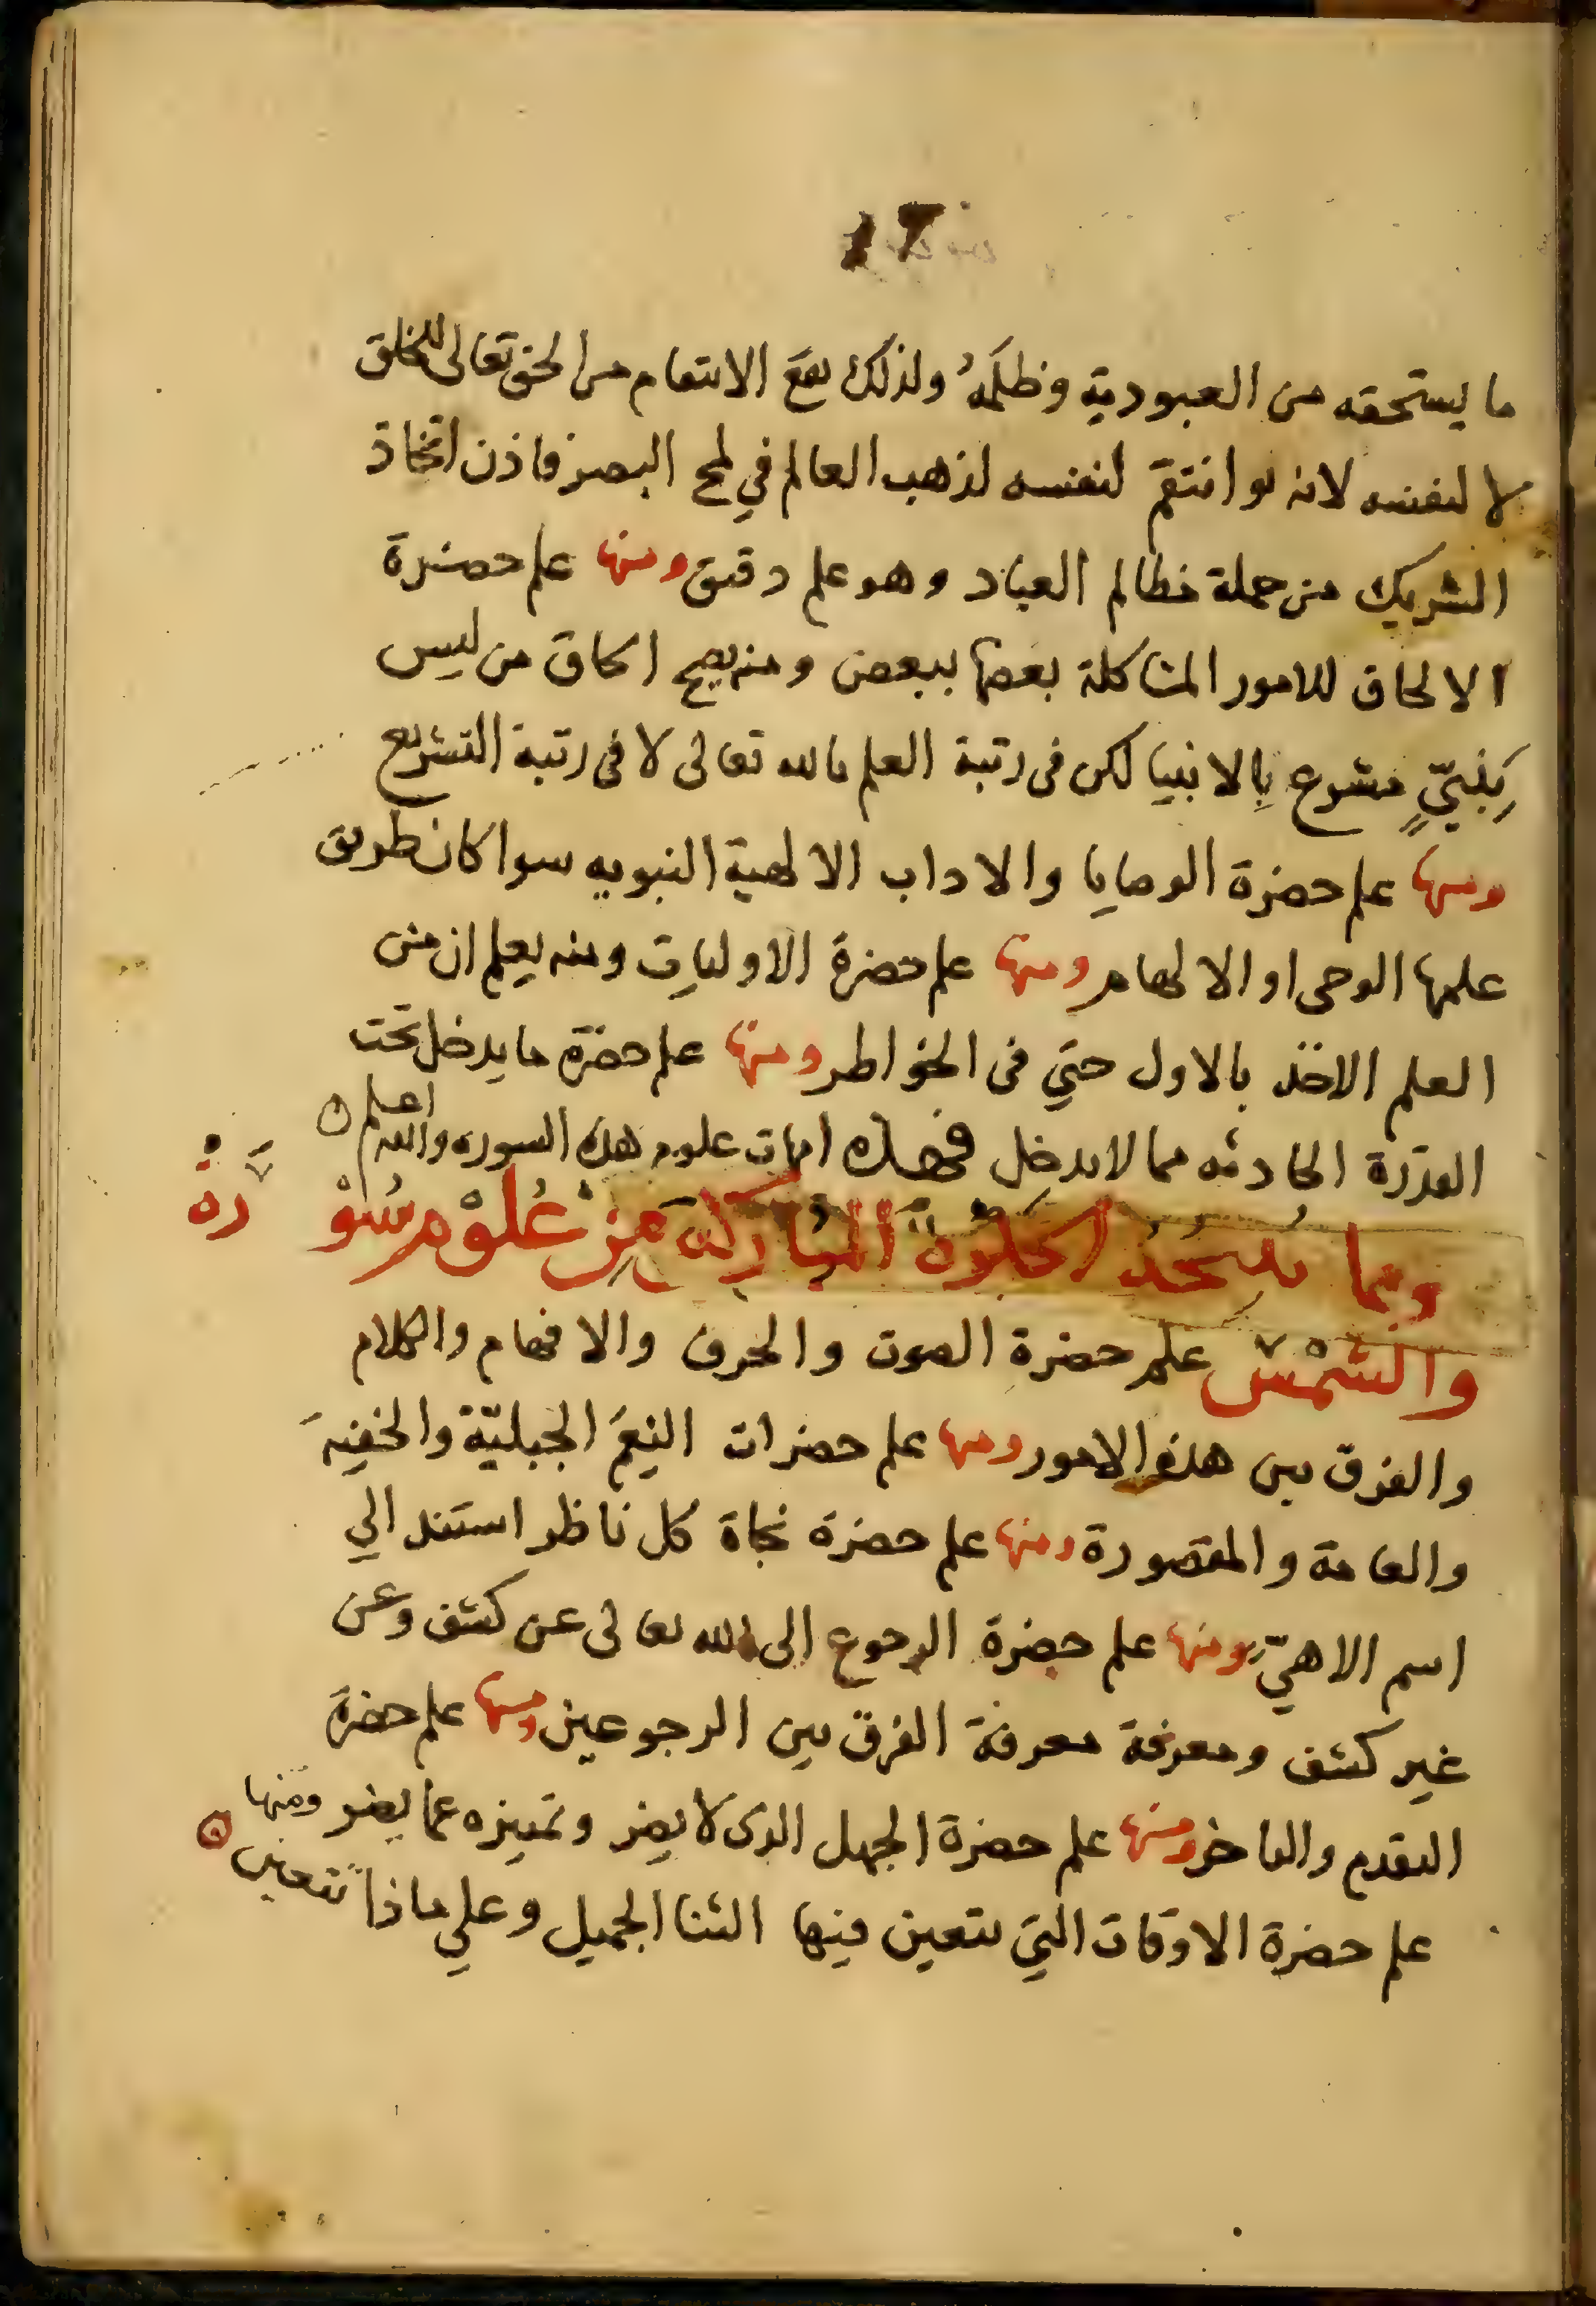 ما يستحقه من العبودية وظلمه ولذلك يقع الانتقام من الحق تعالى للخلق
لا لنفسه لانه لو انتقم لنفسه لذهب العالم في لمح البصر فاذن اتخاذ
الشريك من جملة مظالم العباد وهو علم دقيق ومنها علم حضرة
الالحاق للامور المشاكلة بعضها ببعض ومنه يصح الحاق من ليس
بنبيٍّ مشرع بالانبيا لكن في رتبة العلم بالله تعالى لا في رتبة التشريع
ومنها علم حضرة الوصايا والاداب الالهية النبويه سوا كان طريق
علمها الوحى او الالهام ومنها علم حضرة الاوليات ومنه يعلم ان من
العلم الاخذ بالاول حتي في الخواطر ومنها علم حضرة ما يدخل تحت
القدرة الحادثه مما لا يدخل فهذه امهات علوم هذه السوره والله اعلم
ومما الخلوة المباركة من علوم سورة
والشمس علم حضرة الصوت والحرف والافهام والكلام
والفرق بين هذه الامور ومنها علم حضرات النعم الجبليّة والخفية
والعامة والمقصورة ومنها علم حضرة نجاة كل ناظر استند الي
اسم الاهيّ ومنها علم حضرة الرجوع الى الله تعالى عن كشف وعن
غير كشف ومعرفة معرفة الفرق بين الرجوعين ومنها علم حضرة
التقدم والتاخر ومنها علم حضرة الجهل الذى لا يضر وتميزه عما يضر ومنها
علم حضرة الاوقات التي يتعين فيها الثنا الجميل وعلي ماذا يتعين